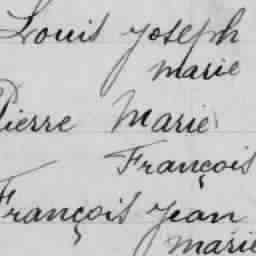 Louis Joseph
marie
Pierre Marie
François
François Jean
marie